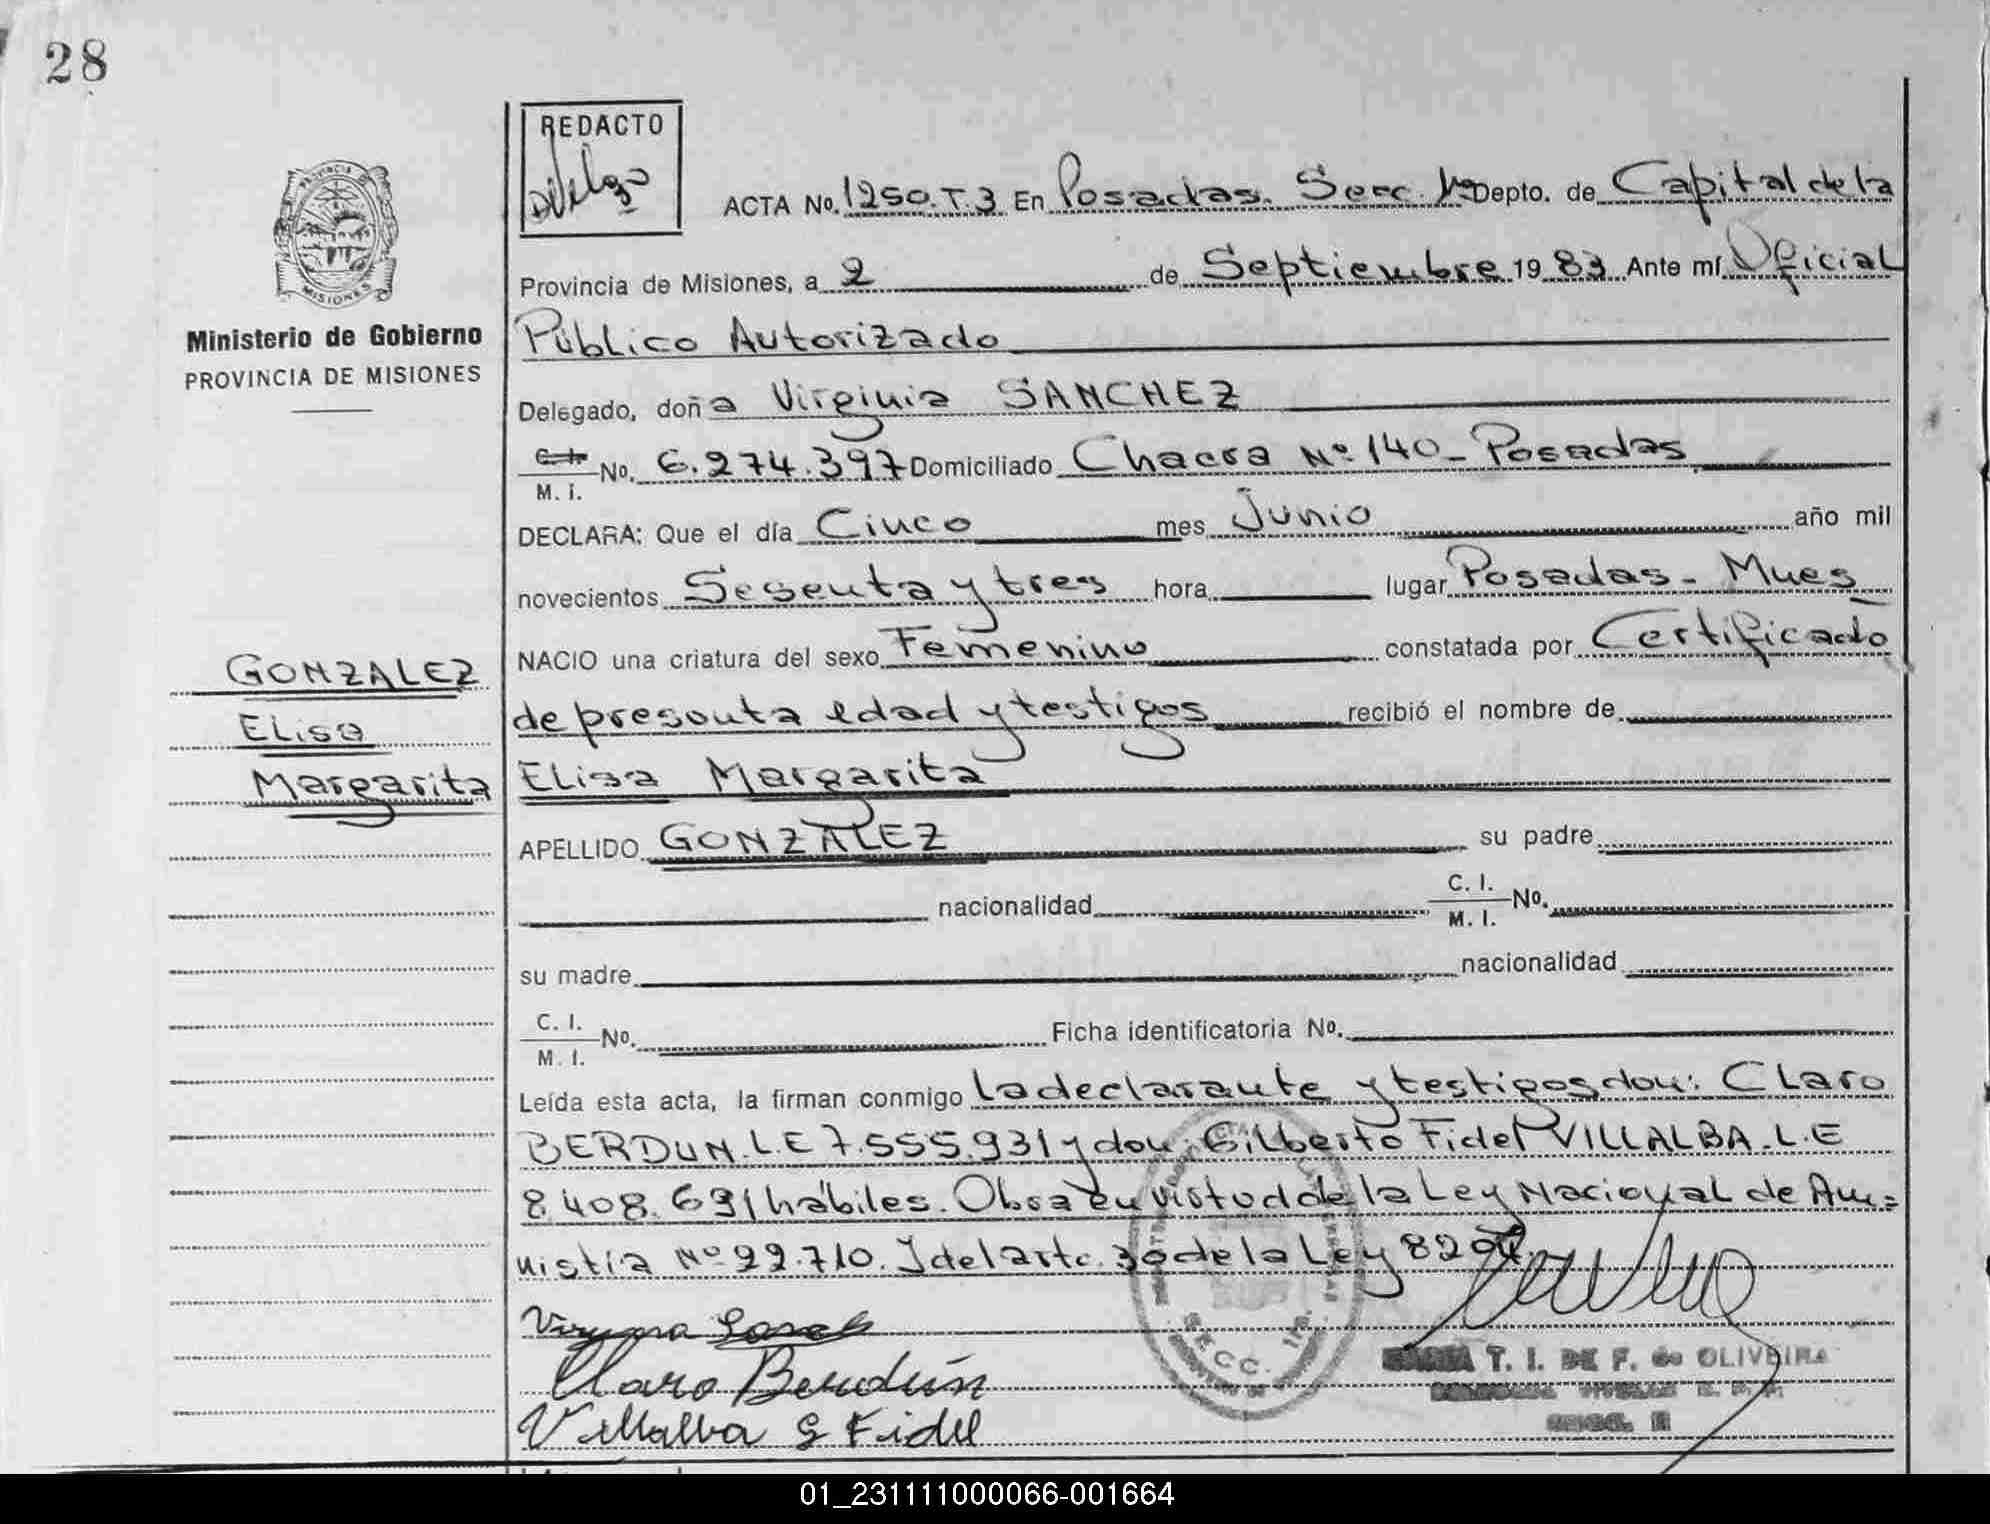 28
REDACTO
ACTA No. 1250.T.3 En Posadas. Secc. 1ª Depto. de Capital de la
Provincia de Misiones, a 2 de Septiembre 1983 Ante mí Oficial
MISIONES
Ministerio de Gobierno
PROVINCIA DE MISIONES
Público Autorizado
Delegado, doña Virginia SANCHEZ
C. I. / M. I. No. 6.274.397 Domiciliado Chacra Nº 140 - Posadas
DECLARA: Que el día Cinco mes Junio año mil
novecientos Sesenta y tres hora lugar Posadas - Mnes
NACIO una criatura del sexo Femenino constatada por Certificado
GONZALEZ
Elisa
Margarita
de presunta edad y testigos recibió el nombre de
Elisa Margarita
APELLIDO GONZALEZ su padre
nacionalidad C. I. / M. I. No.
su madre nacionalidad
C. I. / M. I. No. Ficha identificatoria No.
Leída esta acta, la firman conmigo la declarante y testigos don: Claro
BERDUN. L.E 7.555.931 y don: Gilberto Fidel VILLALBA. L.E
8.408.691 hábiles. Obra en virtud de la Ley Nacional de Am=
nistía Nº 22.710. Y del artc. 30 de la Ley 8204.
Claro Berdún
Villalba G Fidel
SECC. 1ra.
MARIA T. I. DE F. de OLIVEIRA
01_231111000066-001664